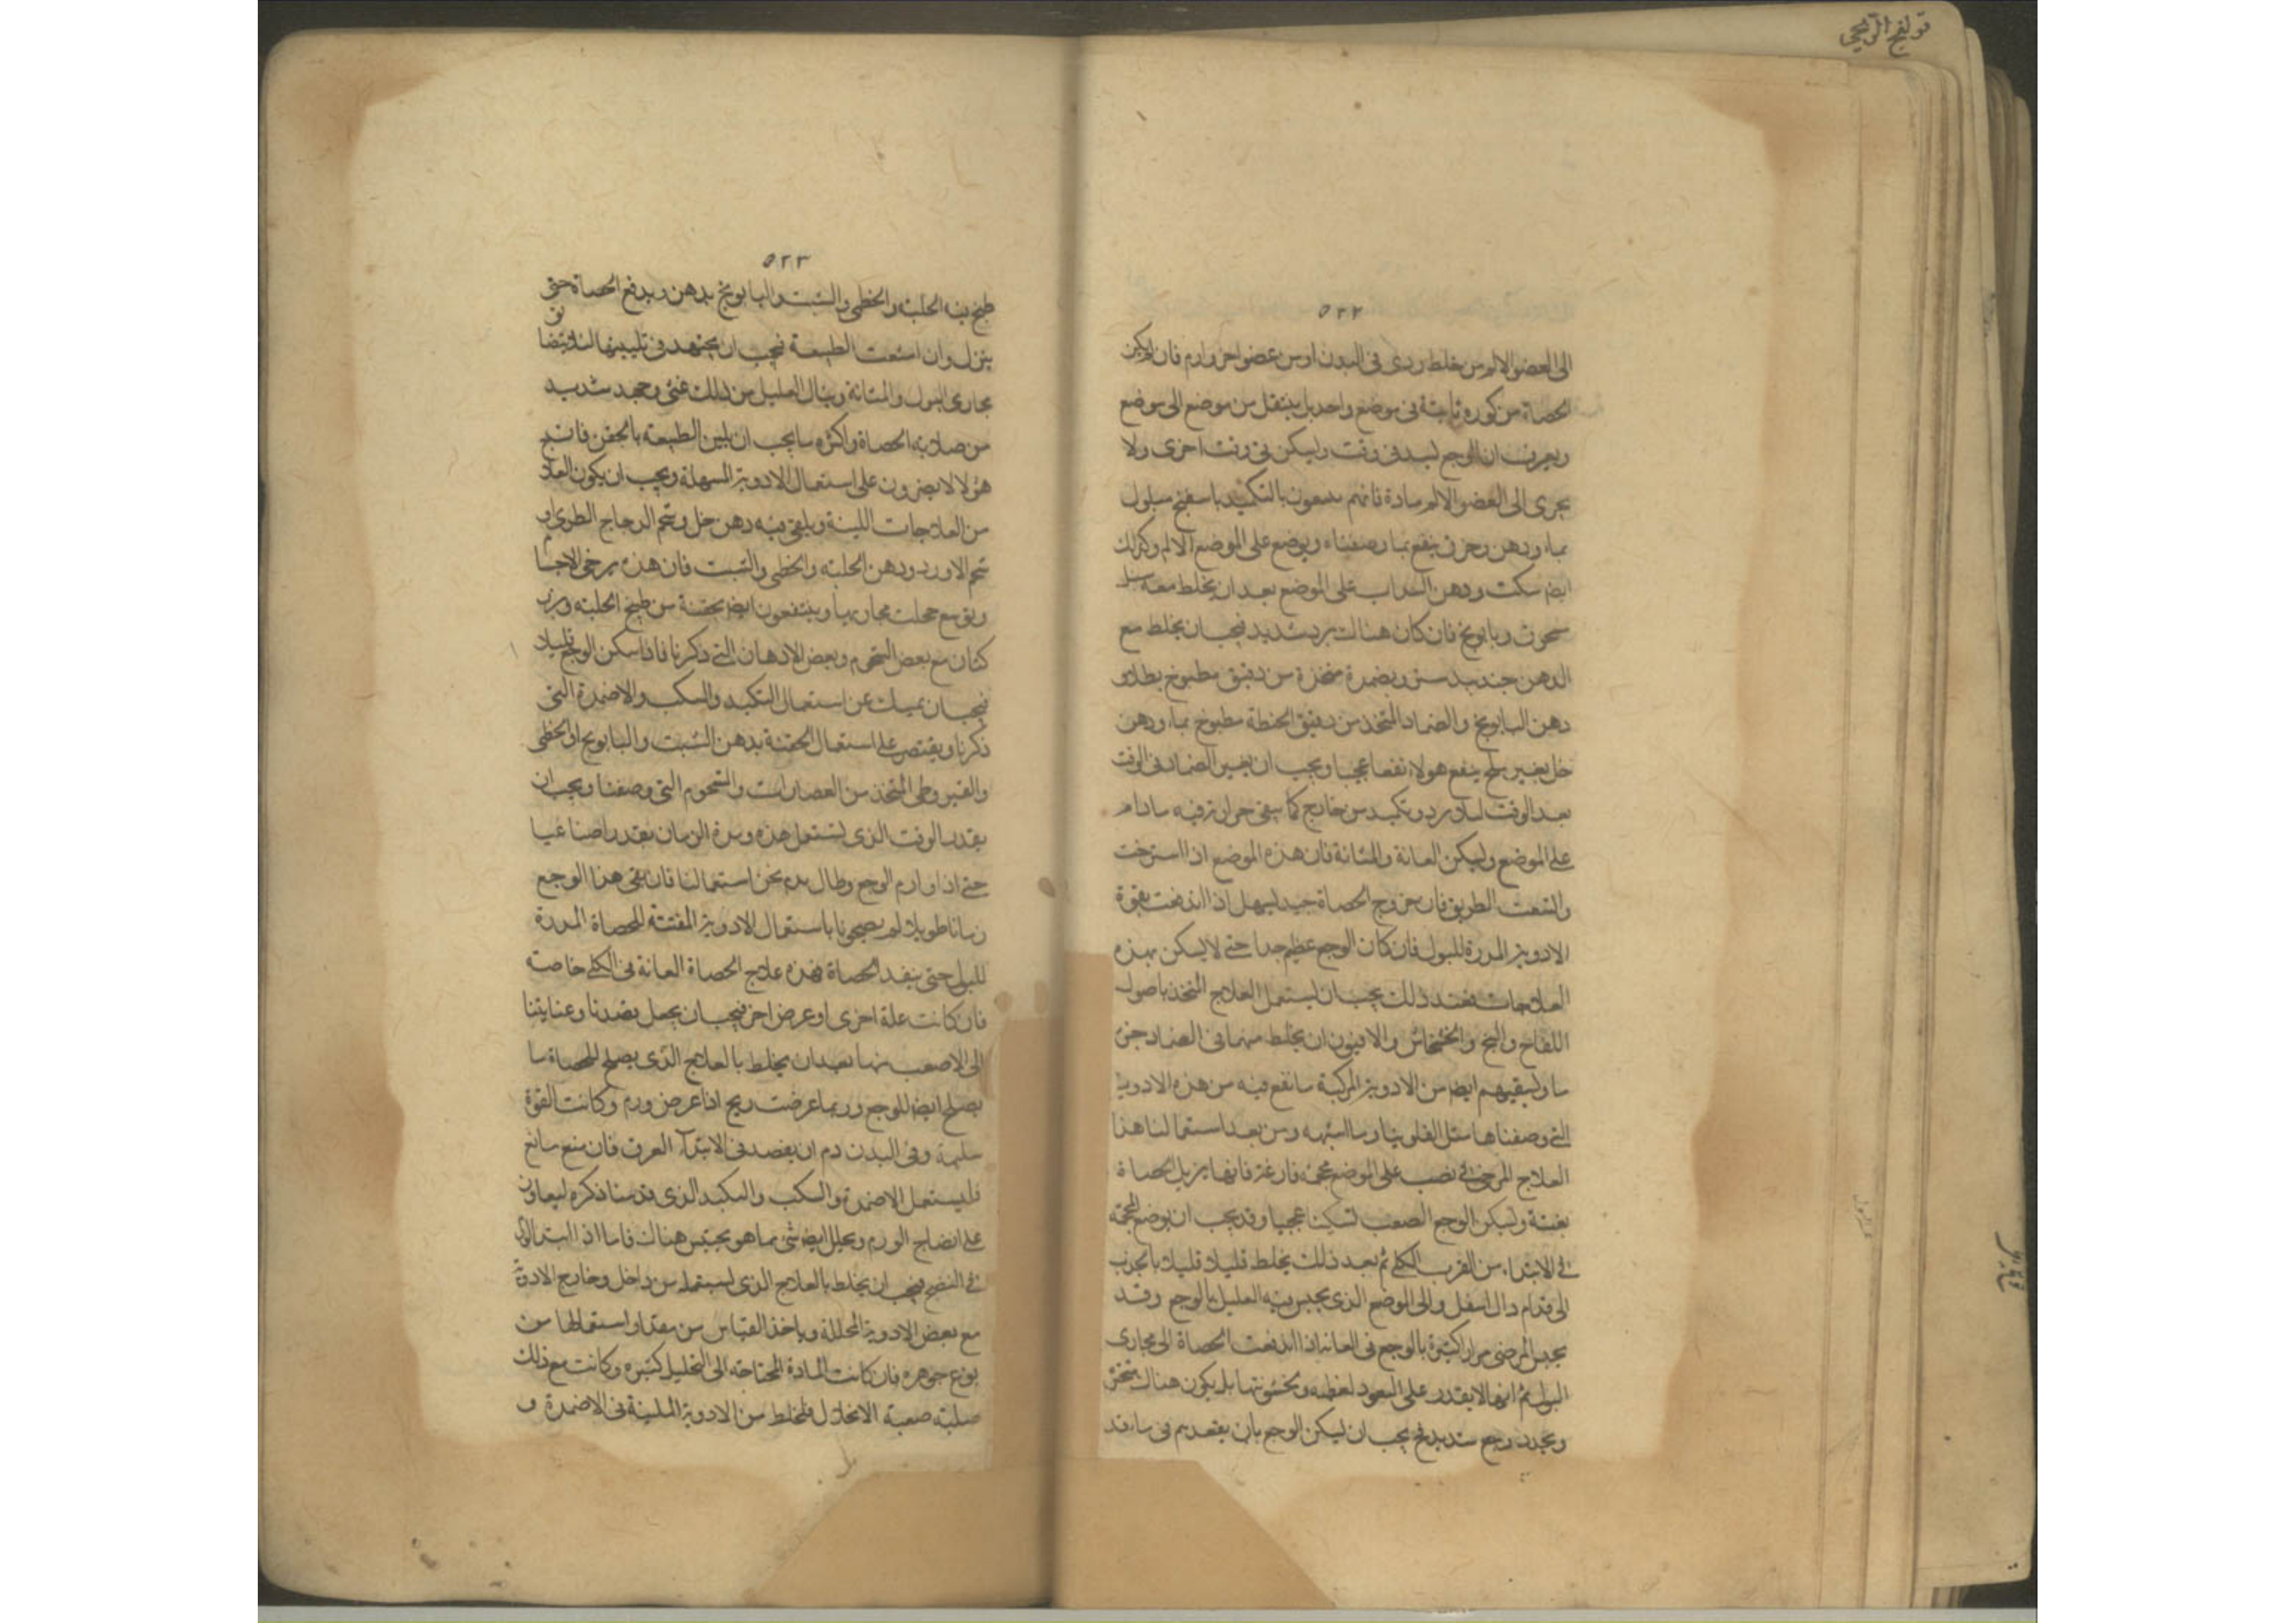 قولنج الريحى
٥٢٢
الى العضو الالم من خلط ردى فى البدن او من عضو اخر وارم فان لم يكن
الحصاة مركوزة ثابتة فى موضع واحد بل ينتقل من موضع الى موضع
ويعرف ان الوجع ليشد فى وقت وليسكن فى وقت اخرى ولا
يجرى الى العضو الالم مادة فانهم ينتفعون بالتكميد باسفنج مبلول
بماء ودهن وخرق ينقع بما وصفناه ويوضع على الموضع الالم وكذلك
ايضا سكب ودهن السداب على الموضع بعد ان يخلط معه
مسحوق وبابونج فان كان هناك برد شديد فيجب ان يخلط مع
الدهن جندبيدستر ويضمدة متخذة من دقيق مطبوخ بطلاو
دهن البابونج والضماد المتخذ من دقيق الحنطة مطبوخ بماء ودهن
خل بغير ملح ينفع هولاء نفعا عجيبا ويجب ان يغير الضماد فى الوقت
بعد الوقت لئلا يبرد وتكمد من خارج كما يبقى حرارته فيه مادام
على الموضع وليسكن العانة والمثانة فان هذه الموضع اذا استرخت
واتسعت الطريق فان خروج الحصاة حينئذ ليسهل اذا اندفعت بقوة
الادوية المدرة للبول فان كان الوجع عظيم جدا حتى لا ليسكن بهذه
العلاجات فعند ذلك يجب ان ليستعمل العلاج المتخذ باصول
اللفاح والبنج والخشخاش والافيون ان يخلط منهما فى الضماد جزء
ما وليسقيهم ايضا من الادوية المركبة ما نقع فيه من هذه الادوية
التى وصفناها مثل الفلونيا وما اشبهه ومن بعد استعمالنا هذا
العلاج المرخى نصب على الموضع محجمة فارغة فانها يزيل الحصاة
بغتة وليسكن الوجع الصعب تسكينا عجيبا وقد يجب ان يوضع المحجمة
فى الابتداء من القرب الكلى ثم بعد ذلك يخلط قليلا قليلا بالجذب
الى قدام والى اسفل والى الموضع الذى يحس فيه العليل بالوجع وقد
يحس المرضى مرارا كثيرة بالوجع فى العانة اذا اندفعت الحصاة الى مجارى
البول ثم انها لا يقدر على النفود لعظمه وخشونتها بل يكون هناك
ويجدد وجع شديد فيجب ان ليسكن الوجع بان يقعدهم فى ماء قد
٥٢٣
طبخ فيه الحلبة والخطمى والشبت والبابونج بدهن ويدفع الحصاة حتى
ينزل وان امتنعت الطبيعة فيجب ان يجتهد فى تليينها لئلا يتضا
مجارى البول والمثانة وينال العليل من ذلك غشى وجهد شديد
من صلابة الحصاة واكثر ما يجب ان يلين الطبيعة بالحقن فان
هؤلاء لا يضرون على استعمال الادوية المسهلة ويجب ان يكون العلا
من العلاجات اللينة ويلقى فيه دهن خل وشحم الدجاج الطرى و
شحم الاوز ودهن الحلبة والخطمى والشبت فان هذه يرخى الاجسا
ويوسع مجاريها وينتفعون ايضا بحقنة من طبيخ الحلبة وبزر
كتان مع بعض الشحوم وبعض الادهان التى ذكرنا فاذا سكن الوجع قليلا
فيجب ان يمسك عن استعمال التكميد والسكب والاضمدة التى
ذكرنا ويقتصر على استعمال الحقنة بدهن الشبت والبابونج او الخطمى
والقيروطى المتخذ من العصارات والشحوم التى وصفنا ويجب ان
يقدر الوقت الذى ليستعمل هذه ومدة الزمان بقدر اصناعيا
حتى اذا اورم الوجع وطال يدم نحن استعمالنا فان بقى هذا الوجع
زمانا طويلا لم يصحونا باستعمال الادوية المفتتة للحصاة المدرة
للبول حتى ينفد الحصاة فهذه علاج الحصاة العانة فى الكلى خاصة
فان كانت علة اخرى او عرض اخر فيجب ان يجعل بقصدنا وعنايتنا
الى الاصعب منها بعد ان يخلط بالعلاج الذى يصلح للحصاة ما
يصلح ايضا للوجع وربما عرضت ريح اذا عرض ورم وكانت القوة
سليمة وفى البدن دم ان يفصد فى الابتداء العرق فان منع مانع
فليستعمل الاضمدة والسكب والتكميد الذى قدمنا ذكره ليعاون
على انضاج الورم ويحلل ايضا شئ مما هو يحتبس هناك فاما اذا ابتدا الورم
فى النضج فيجب ان يخلط بالعلاج الذى ليستعمل من داخل وخارج الادوية
مع بعض الادوية المحللة وياخذ القياس من مقدار استعمالها من
نوع جوهره فان كانت المادة المحتاجة الى التحليل كثيرة وكانت مع ذلك
صلبة صعبة الانحلال فليخلط من الادوية الملينة فى الاضمدة و